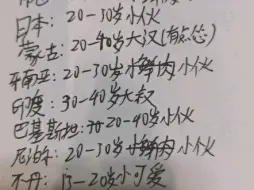 日本：20-30岁小伙
蒙古：20-40岁大汉(有点怂)
东南亚：20-30岁小鲜肉小伙
印度：30-40岁大叔
巴基斯坦：20-40岁小伙
尼泊尔：20-30岁小鲜肉小伙
不丹：13-20岁小可爱